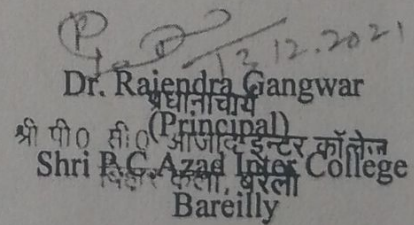 13.12.2021
Dr. Rajendra Gangwar
प्रधानाचार्य
(Principal)
श्री पी० सी० आजाद इन्टर कॉलेज
Shri P.C.Azad Inter College
बिहार कला, बरेली
Bareilly